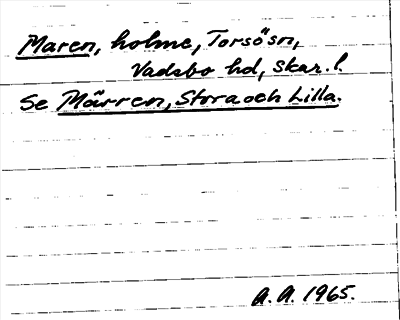 Maren, holme, Torsö sn,
Vadsbo hd, Skar. l.
Se Märren, Stora och Lilla.
A. A. 1965.